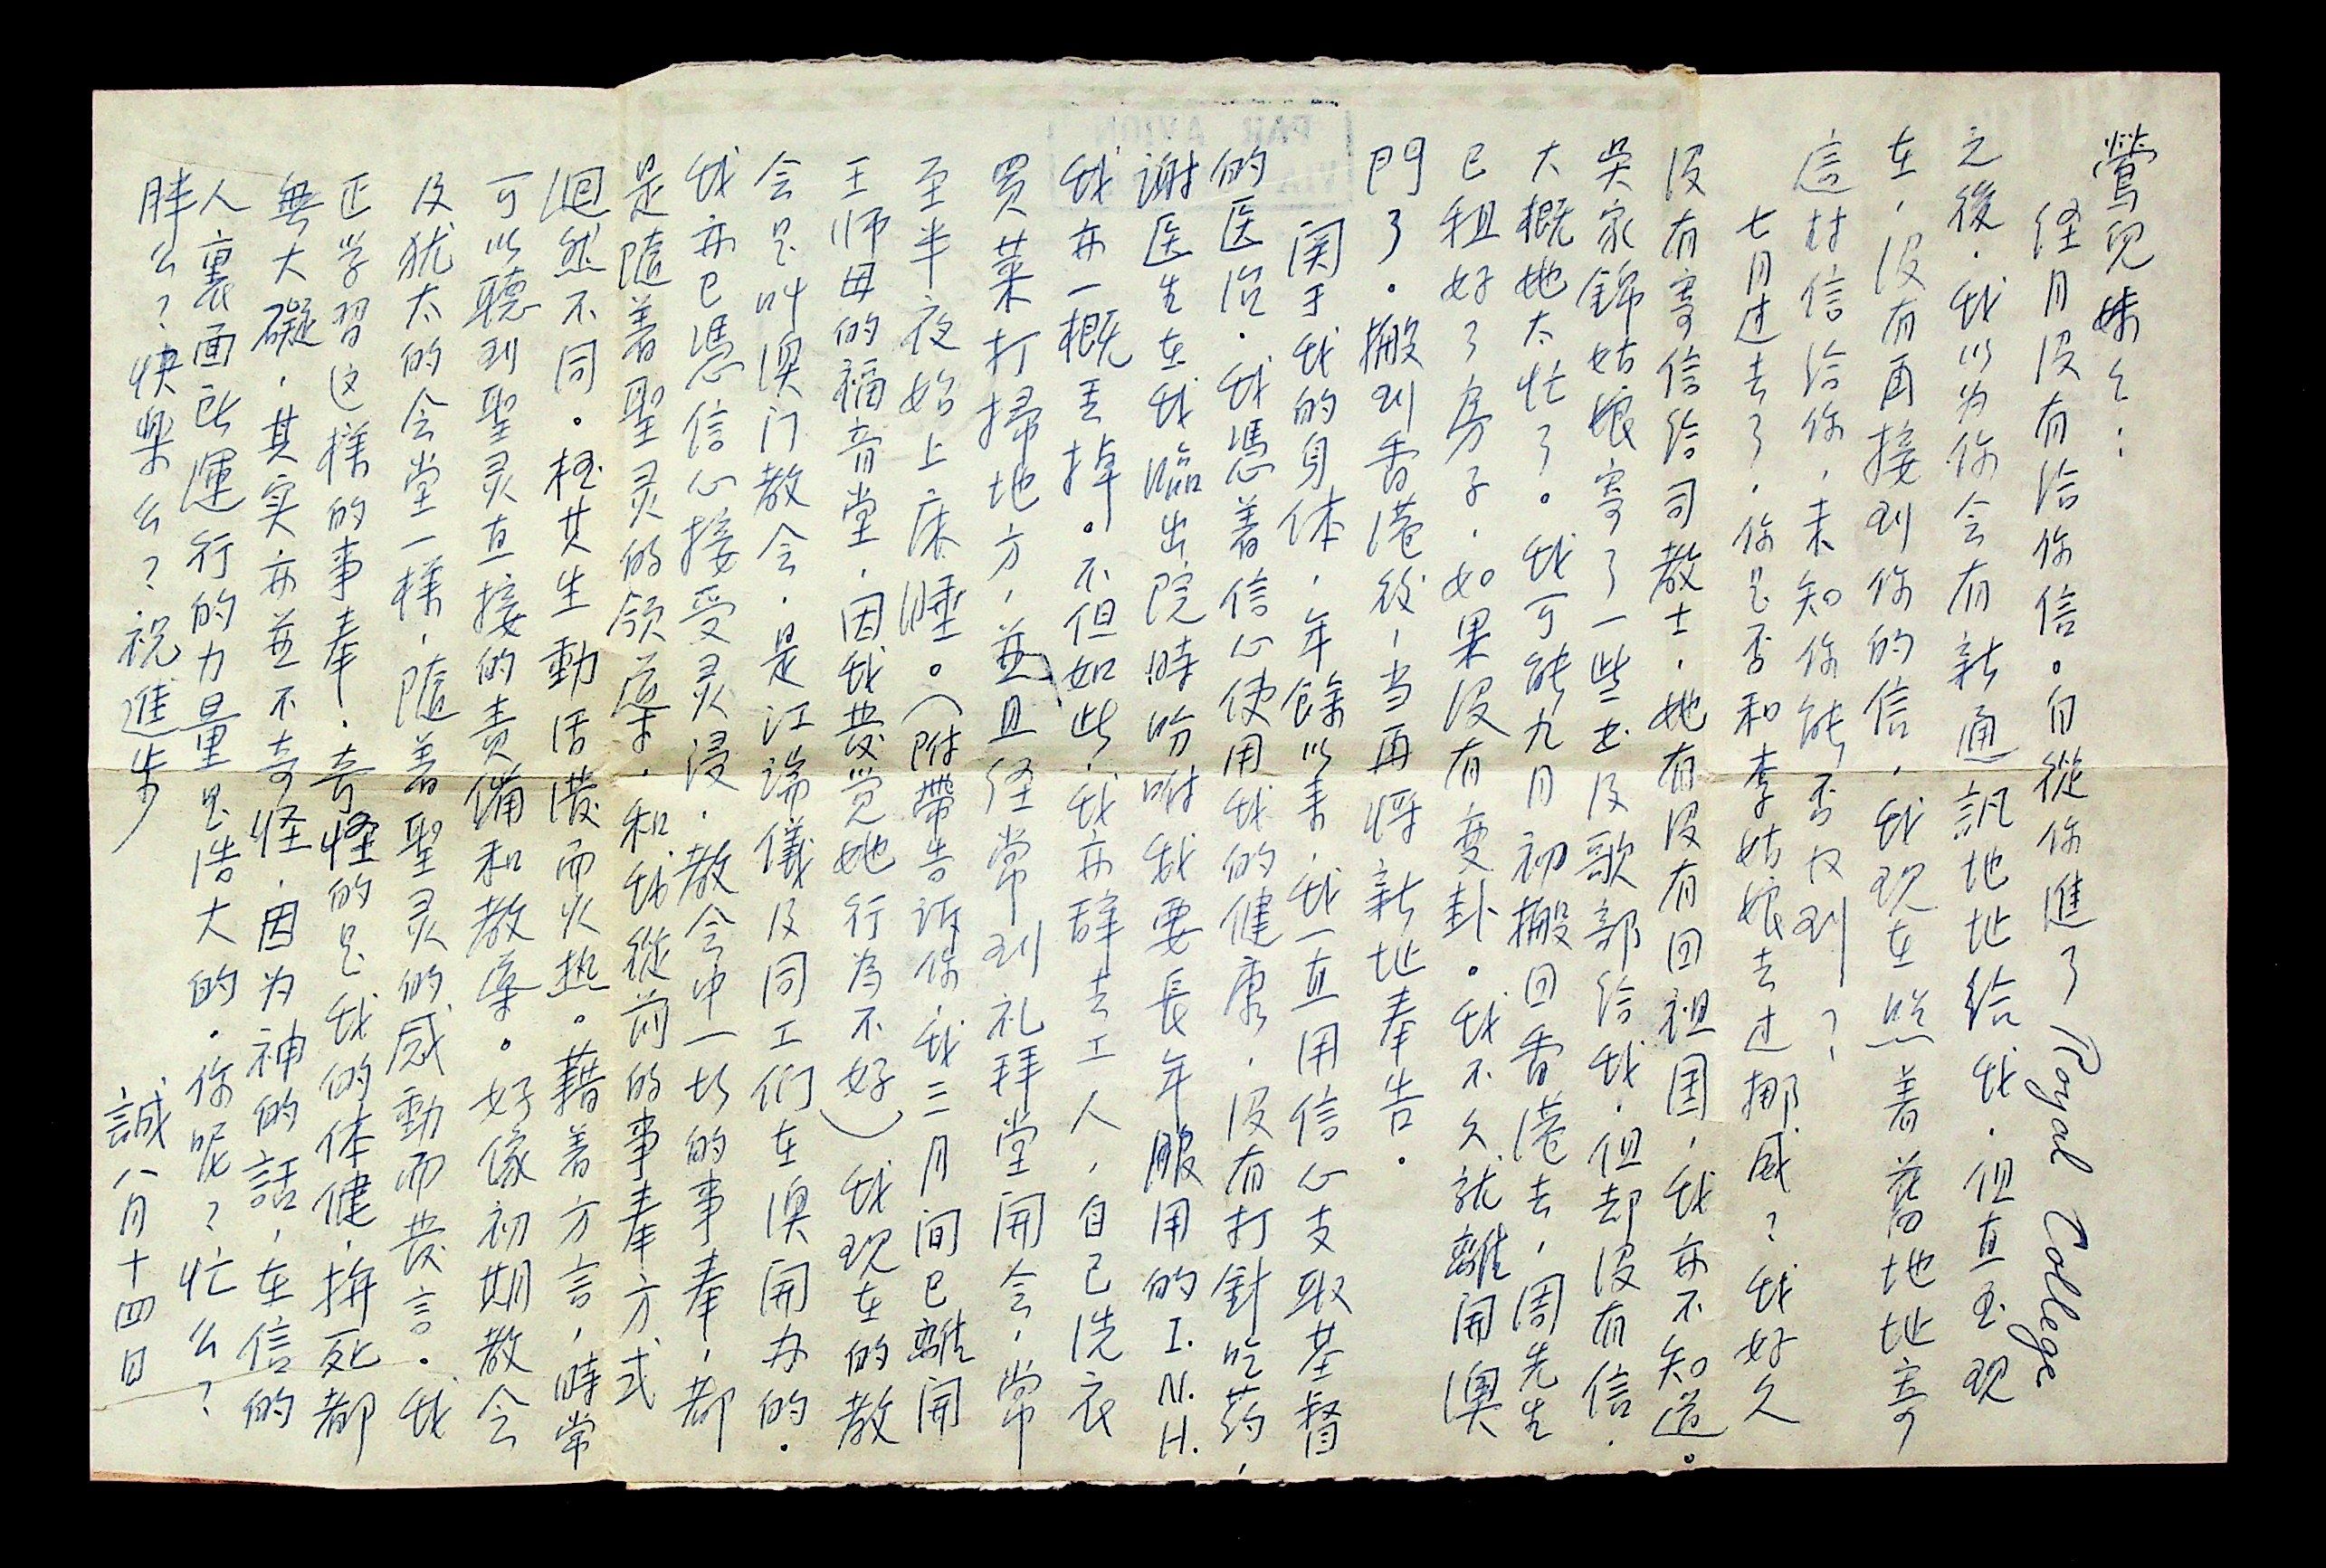 鶯兒妹々：
経月没有给你信。自從你進了 Royal College
之後．我以为你会有新通訊地址给我．但直至現
在，没有再接到你的信，我現在照着舊地址寄
這封信给你，未知你能否收到？
七月过去了．你是否和李姑娘去过挪威？我好久
没有寄信给司教士．她有没有回祖国，我亦不知道。
吳家錦姑娘寄了一些書及歌部给我．但却没有信．
大概她太忙了。我可能九月初搬回香港去，周先生
已租好了房子．如果没有变卦。我不久就離開澳
門了。搬到香港後，当再将新地奉告．
関于我的身体．年餘以来，我一直用信心支取基督
的医治．我憑着信心使用我的健康．没有打針吃药，
謝医生在我臨出院時吩咐我要長年服用的 I.N.H.
我亦一概丟掉。不但如此，我亦辞去工人，自己洗衣
買菜打掃地方，並且経常到礼拜堂開会，常
至半夜始上床睡。（附帶告訴你，我三月间已離開
王师母的福音堂．因我發覚她行为不好）我現在的教
会是叫澳门教会．是江端儀及同工们在澳開办的．
我亦已憑信心接受灵浸．教会中一切的事奉，都
是隨着聖灵的領導．和我從前的事奉方式
迥然不同。極其生動活潑而火热。藉着方言，時常
可以聽到聖灵直接的责備和教導。好像初期教会
及犹太的会堂一樣，隨着聖灵的感動而發言。我
正学習这樣的事奉．奇怪的是我的体健，拚死都
無大礙．其实亦並不奇怪．因为神的話，在信的
人裏面所運行的力量是浩大的．你呢？忙么？
胖么？快樂么？祝進步
誠八月十四日
PAR AVION
VIA